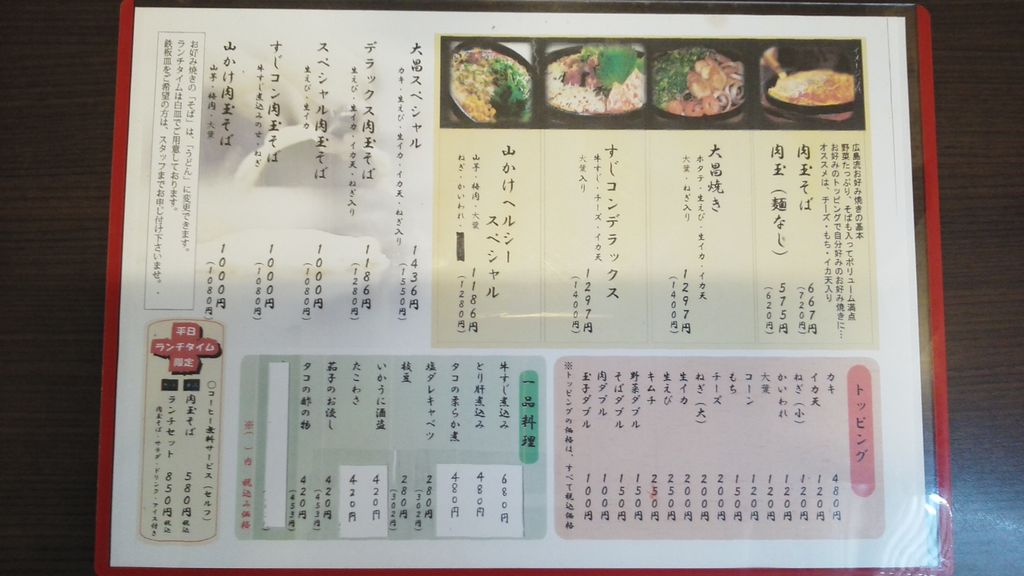 広島流お好み焼きの基本
野菜たっぷり、そばも入ってボリューム満点
お好みのトッピングで自分好みのお好み焼きに…
オススメは、チーズ・もち・イカ天入り
肉玉そば 667円
(720円)
肉玉(麺なし) 575円
(620円)
大昌焼き 1297円
ホタテ・生えび・生イカ・イカ天
大葉・ねぎ入り (1400円)
すじコンデラックス 1297円
牛すじ・チーズ・イカ天
大葉入り (1400円)
山かけヘルシー
スペシャル 1186円
山芋・梅肉・大葉
ねぎ・かいわれ・ (1280円)
大昌スペシャル 1436円
カキ・生えび・生イカ・イカ天・ねぎ入り (1550円)
デラックス肉玉そば 1186円
生えび・生イカ・イカ天・ねぎ入り (1280円)
スペシャル肉玉そば 1000円
生えび・生イカ (1080円)
すじコン肉玉そば 1000円
牛すじ煮込みのせ・ねぎ (1080円)
山かけ肉玉そば 1000円
山芋・梅肉・大葉 (1080円)
お好み焼きの「そば」は、「うどん」に変更できます。
ランチタイムは白皿でご用意しております。
鉄板皿をご希望の方は、スタッフまでお申し付け下さいませ。
トッピング
カキ 480円
イカ天 120円
ねぎ(小) 120円
かいわれ 120円
大葉 120円
コーン 150円
もち 150円
チーズ 200円
ねぎ(大) 200円
生イカ 250円
生えび 250円
キムチ 250円
野菜ダブル 150円
そばダブル 150円
肉ダブル 100円
玉子ダブル 100円
※トッピングの価格は、すべて税込価格
一品料理
牛すじ煮込み 680円
とり肝煮込み 480円
タコの柔らか煮 480円
塩ダレキャベツ 280円
(302円)
枝豆 280円
(302円)
いかうに酒盗 420円
たこわさ 420円
茄子のお浸し 420円
(453円)
タコの酢の物 420円
(453円)
※( )内 税込み価格
平日
ランチタイム
限定
○コーヒー無料サービス(セルフ)
肉玉そば 580円 税込
ランチセット 850円 税込
肉玉そば・サラダ・ドリンク・アイス付き